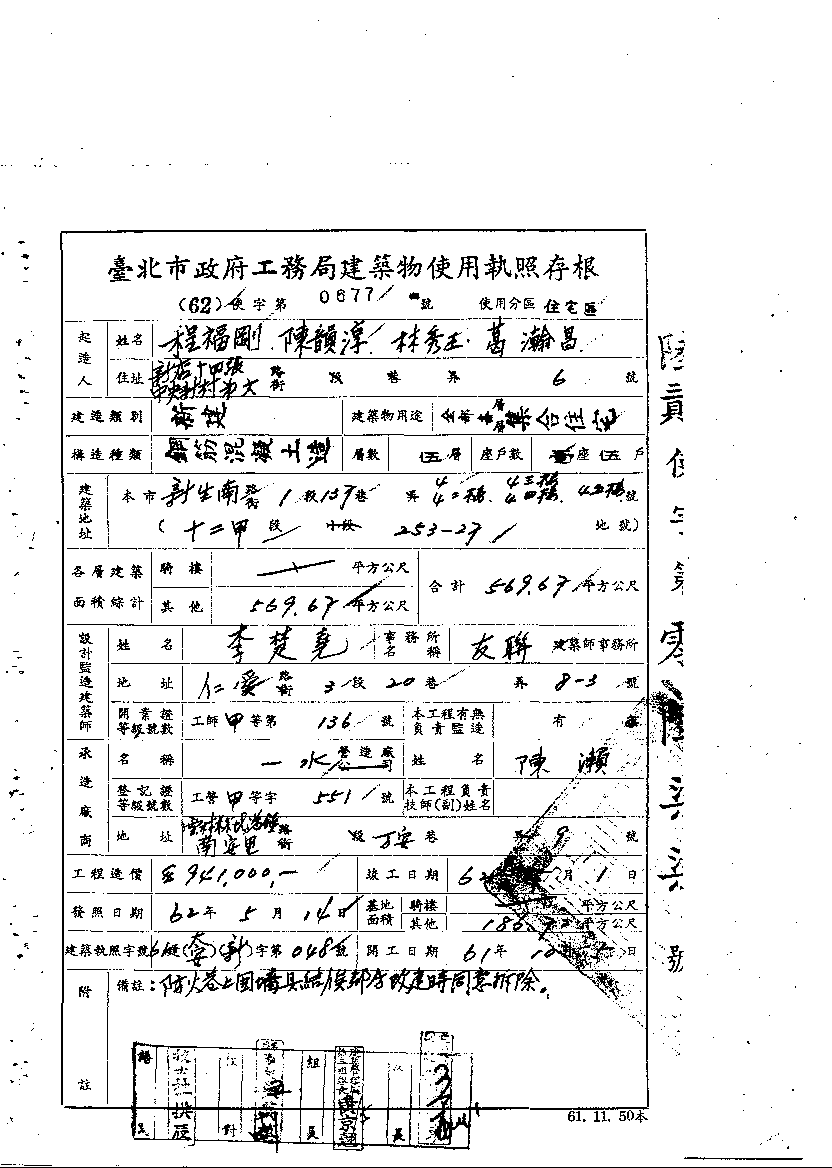 臺北市政府工務局建築物使用執照存根
(62)使字第 0677 號 使用分區 住宅區
起造人 姓名 程福剛 陳韻淳 林秀玉 葛瀚昌
住址 新店十四張中央新村 路街 段 巷 弄 6 號
建造類別 新建 建築物用途 全部 層 集合住宅
構造種類 鋼筋混凝土造 層數 伍層 座戶數 座伍戶
建築地址 本市新生南路街 1段137巷 弄 4 4二樓、4三樓 4四樓、4五樓 號
(十二甲段 小段 253-27 地號)
各層建築面積綜計 騎樓 平方公尺 合計 569.67 平方公尺
其他 569.67 平方公尺
設計監造建築師 姓名 李楚堯 事務所名稱 友聯 建築師事務所
地址 仁愛路街 3段20巷 弄 8-3 號
開業證等級號數 工師甲等第 136 號 本工程有無負責監造 有
承造廠商 名稱 一水 營造廠公司 姓名 陳瀨
登記證等級號數 工營甲等字 551 號 本工程負責技師(副)姓名
地址 南安里 路街 段 丁安巷 弄 9 號
工程造價 941,000,- 竣工日期 62 月1日
發照日期 62年5月14日 基地面積 騎樓 平方公尺
其他 平方公尺
建築執照字號 61建(大安)(新)字第 048 號 開工日期 61年10月5日
附註 備註:防火巷上圍牆具結俟鄰房改建時同意拆除。
61.11.50本
號